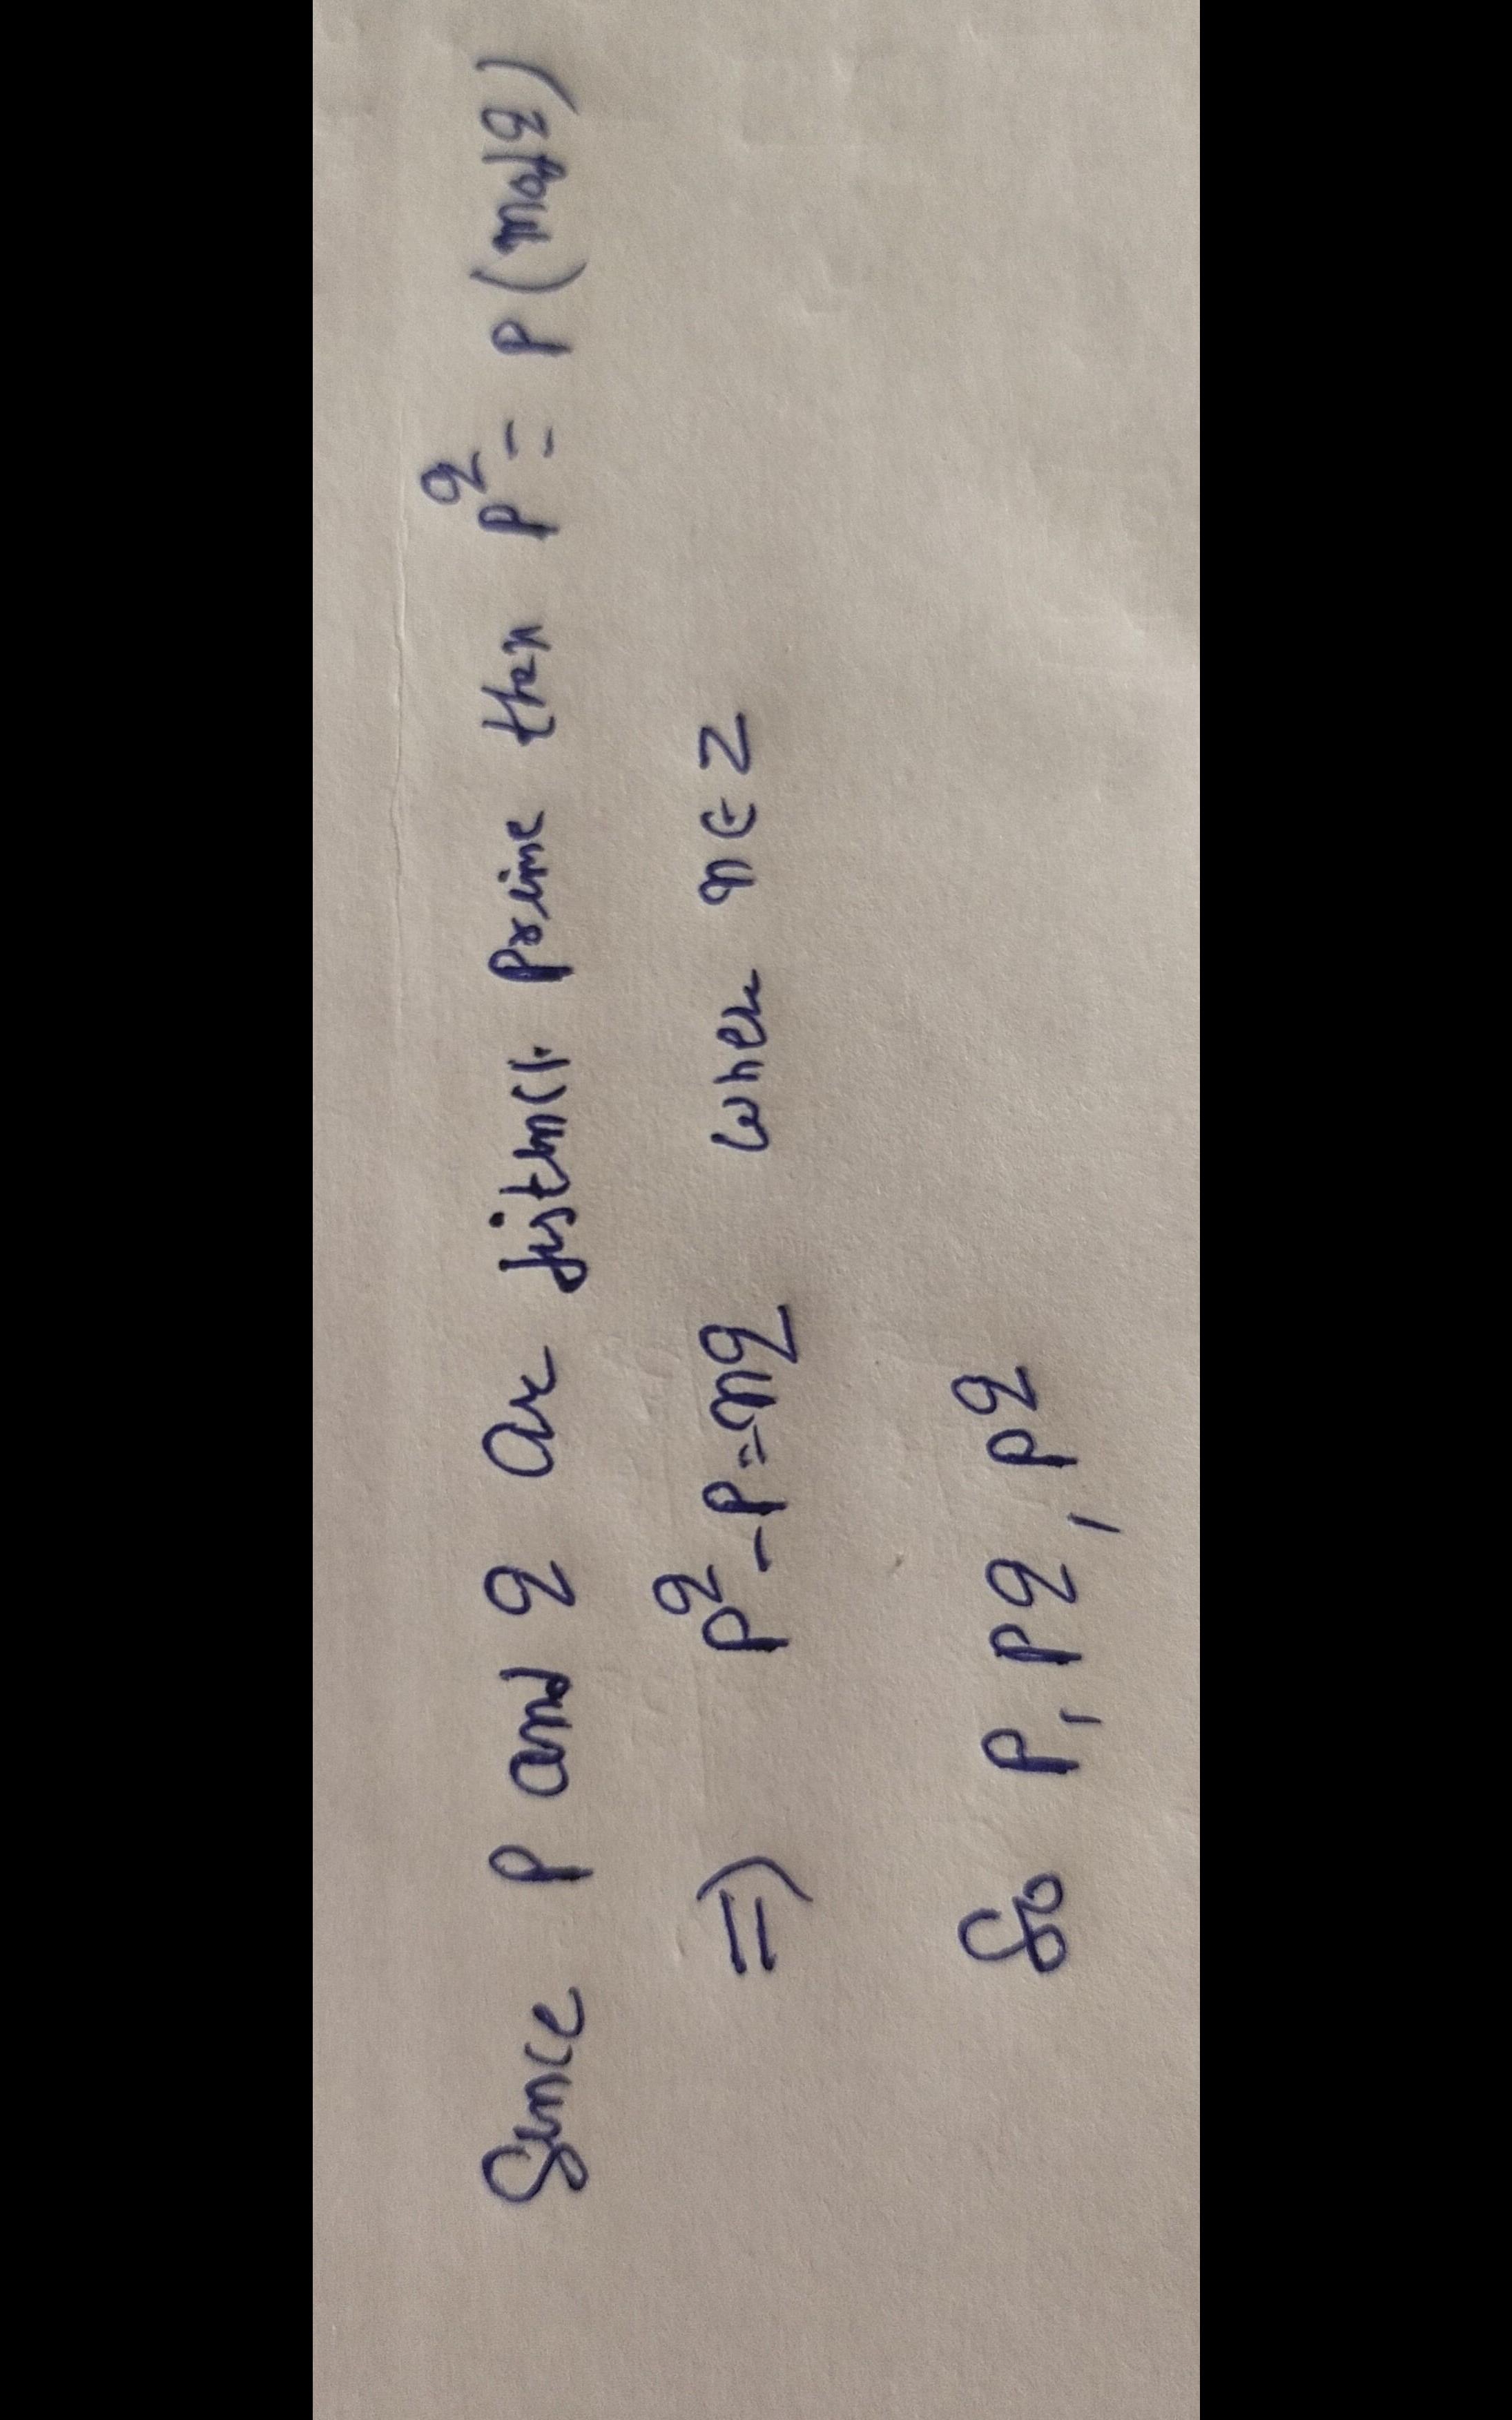 Since P and q are distinct prime then p^q = P (mod q)
=) p^q - P = nq when n ∈ Z
So P, Pq, p^q